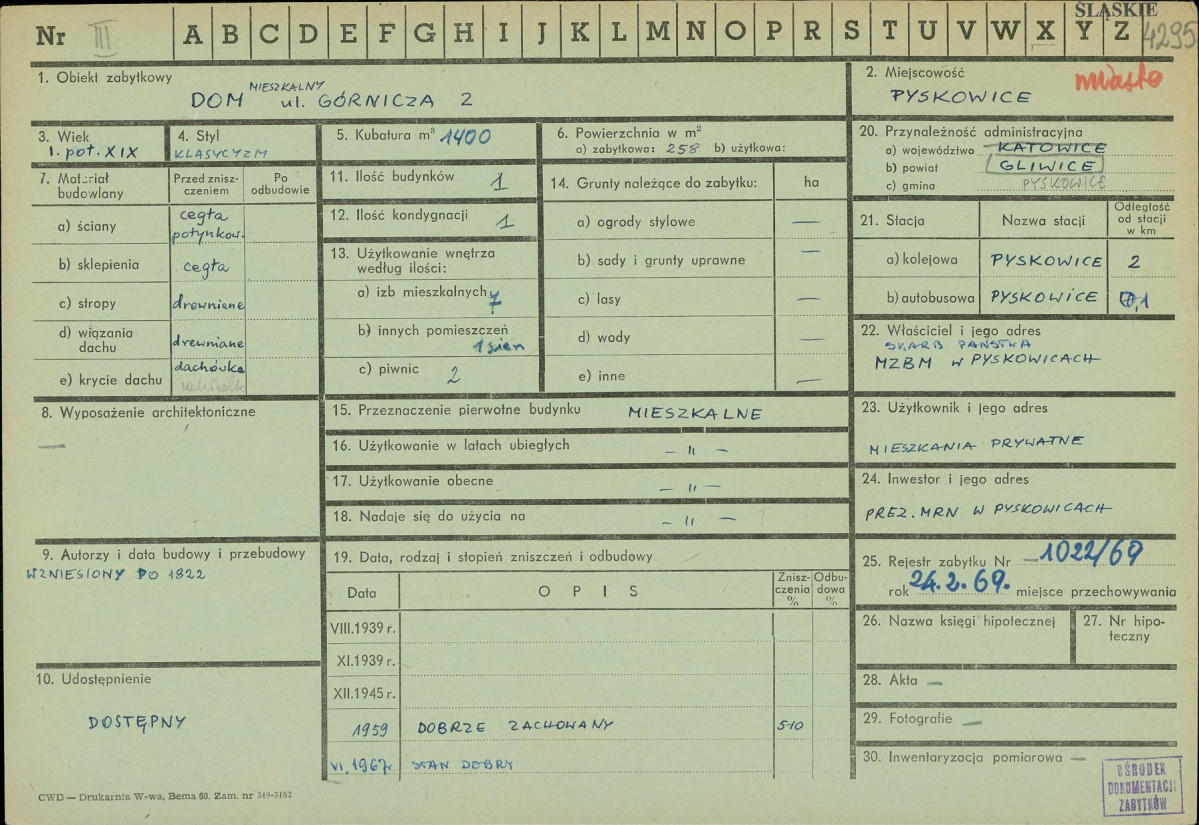 Nr III A B C D E F G H I J K L M N O P R S T U V W X Y Z
ŚLĄSKIE
4295
1. Obiekt zabytkowy
DOM MIESZKALNY ul. GÓRNICZA 2
2. Miejscowość
miasto
PYSKOWICE
3. Wiek
1. poł. XIX
4. Styl
KLASYCYZM
5. Kubatura m³ 1400
6. Powierzchnia w m²
a) zabytkowa: 258 b) użytkowa:
20. Przynależność administracyjna
a) województwo KATOWICE
b) powiat GLIWICE
c) gmina PYSKOWICE
7. Materiał budowlany
Przed zniszczeniem
Po odbudowie
a) ściany
cegła
potynkow.
b) sklepienia cegła
c) stropy drewniane
d) wiązania dachu drewniane
e) krycie dachu dachówka
11. Ilość budynków 1
12. Ilość kondygnacji 1
13. Użytkowanie wnętrza
według ilości:
a) izb mieszkalnych 7
b) innych pomieszczeń
1 sień
c) piwnic 2
14. Grunty należące do zabytku: ha
a) ogrody stylowe —
b) sady i grunty uprawne —
c) lasy —
d) wody —
e) inne —
21. Stacja
Nazwa stacji
Odległość
od stacji
w km
a) kolejowa PYSKOWICE 2
b) autobusowa PYSKOWICE 0,1
22. Właściciel i jego adres
SKARB PAŃSTWA
MZBM W PYSKOWICACH
8. Wyposażenie architektoniczne
—
15. Przeznaczenie pierwotne budynku MIESZKALNE
16. Użytkowanie w latach ubiegłych — " —
17. Użytkowanie obecne — " —
18. Nadaje się do użycia na — " —
23. Użytkownik i jego adres
MIESZKANIA PRYWATNE
24. Inwestor i jego adres
PREZ. MRN W PYSKOWICACH
9. Autorzy i data budowy i przebudowy
WZNIESIONY PO 1822
19. Data, rodzaj i stopień zniszczeń i odbudowy
Data
OPIS
Zniszczenia %
Odbudowa %
VIII.1939 r.
XI.1939 r.
XII.1945 r.
1959 DOBRZE ZACHOWANY 5-10
VI.1967r. STAN DOBRY
25. Rejestr zabytku Nr 1022/69
rok 24.2.69. miejsce przechowywania
26. Nazwa księgi hipotecznej
27. Nr hipoteczny
10. Udostępnienie
DOSTĘPNY
28. Akta —
29. Fotografie —
30. Inwentaryzacja pomiarowa —
OŚRODEK
DOKUMENTACJI
ZABYTKÓW
CWD — Drukarnia W-wa, Bema 60. Zam. nr 349-5162